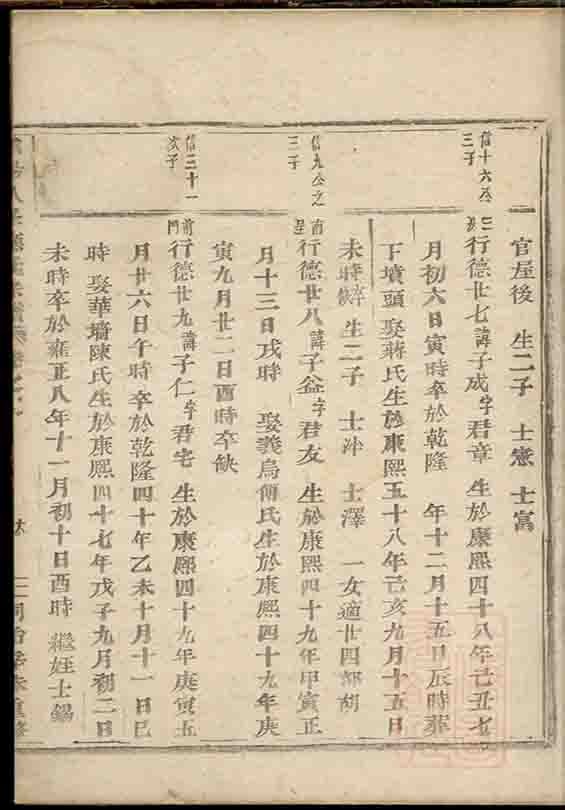 官屋後 生二子 士憲 士富
信十六公
三子
行德廿七諱子成字君章 生於康熙四十八年己丑七
月初六日寅時卒於乾隆 年十二月十五日辰時葬
下墳頭 娶蔣氏生於康熙五十八年己亥九月十五日
未時 生二子 士泮 士澤 一女適廿四都胡
信九公之
三子
行德廿八諱子益字君友 生於康熙四十九年甲寅正
月十三日戌時 娶義烏傅氏生於康熙四十九年庚
寅九月廿二日酉時卒缺
信三十一
次子
前門
行德廿九諱子仁字君宅 生於康熙四十九年庚寅五
月廿六日午時卒於乾隆四十年乙未十月十一日巳
時 娶華墻陳氏生於康熙四十七年戊子九月初二日
未時卒於雍正八年十一月初十日酉時 繼姪士錫